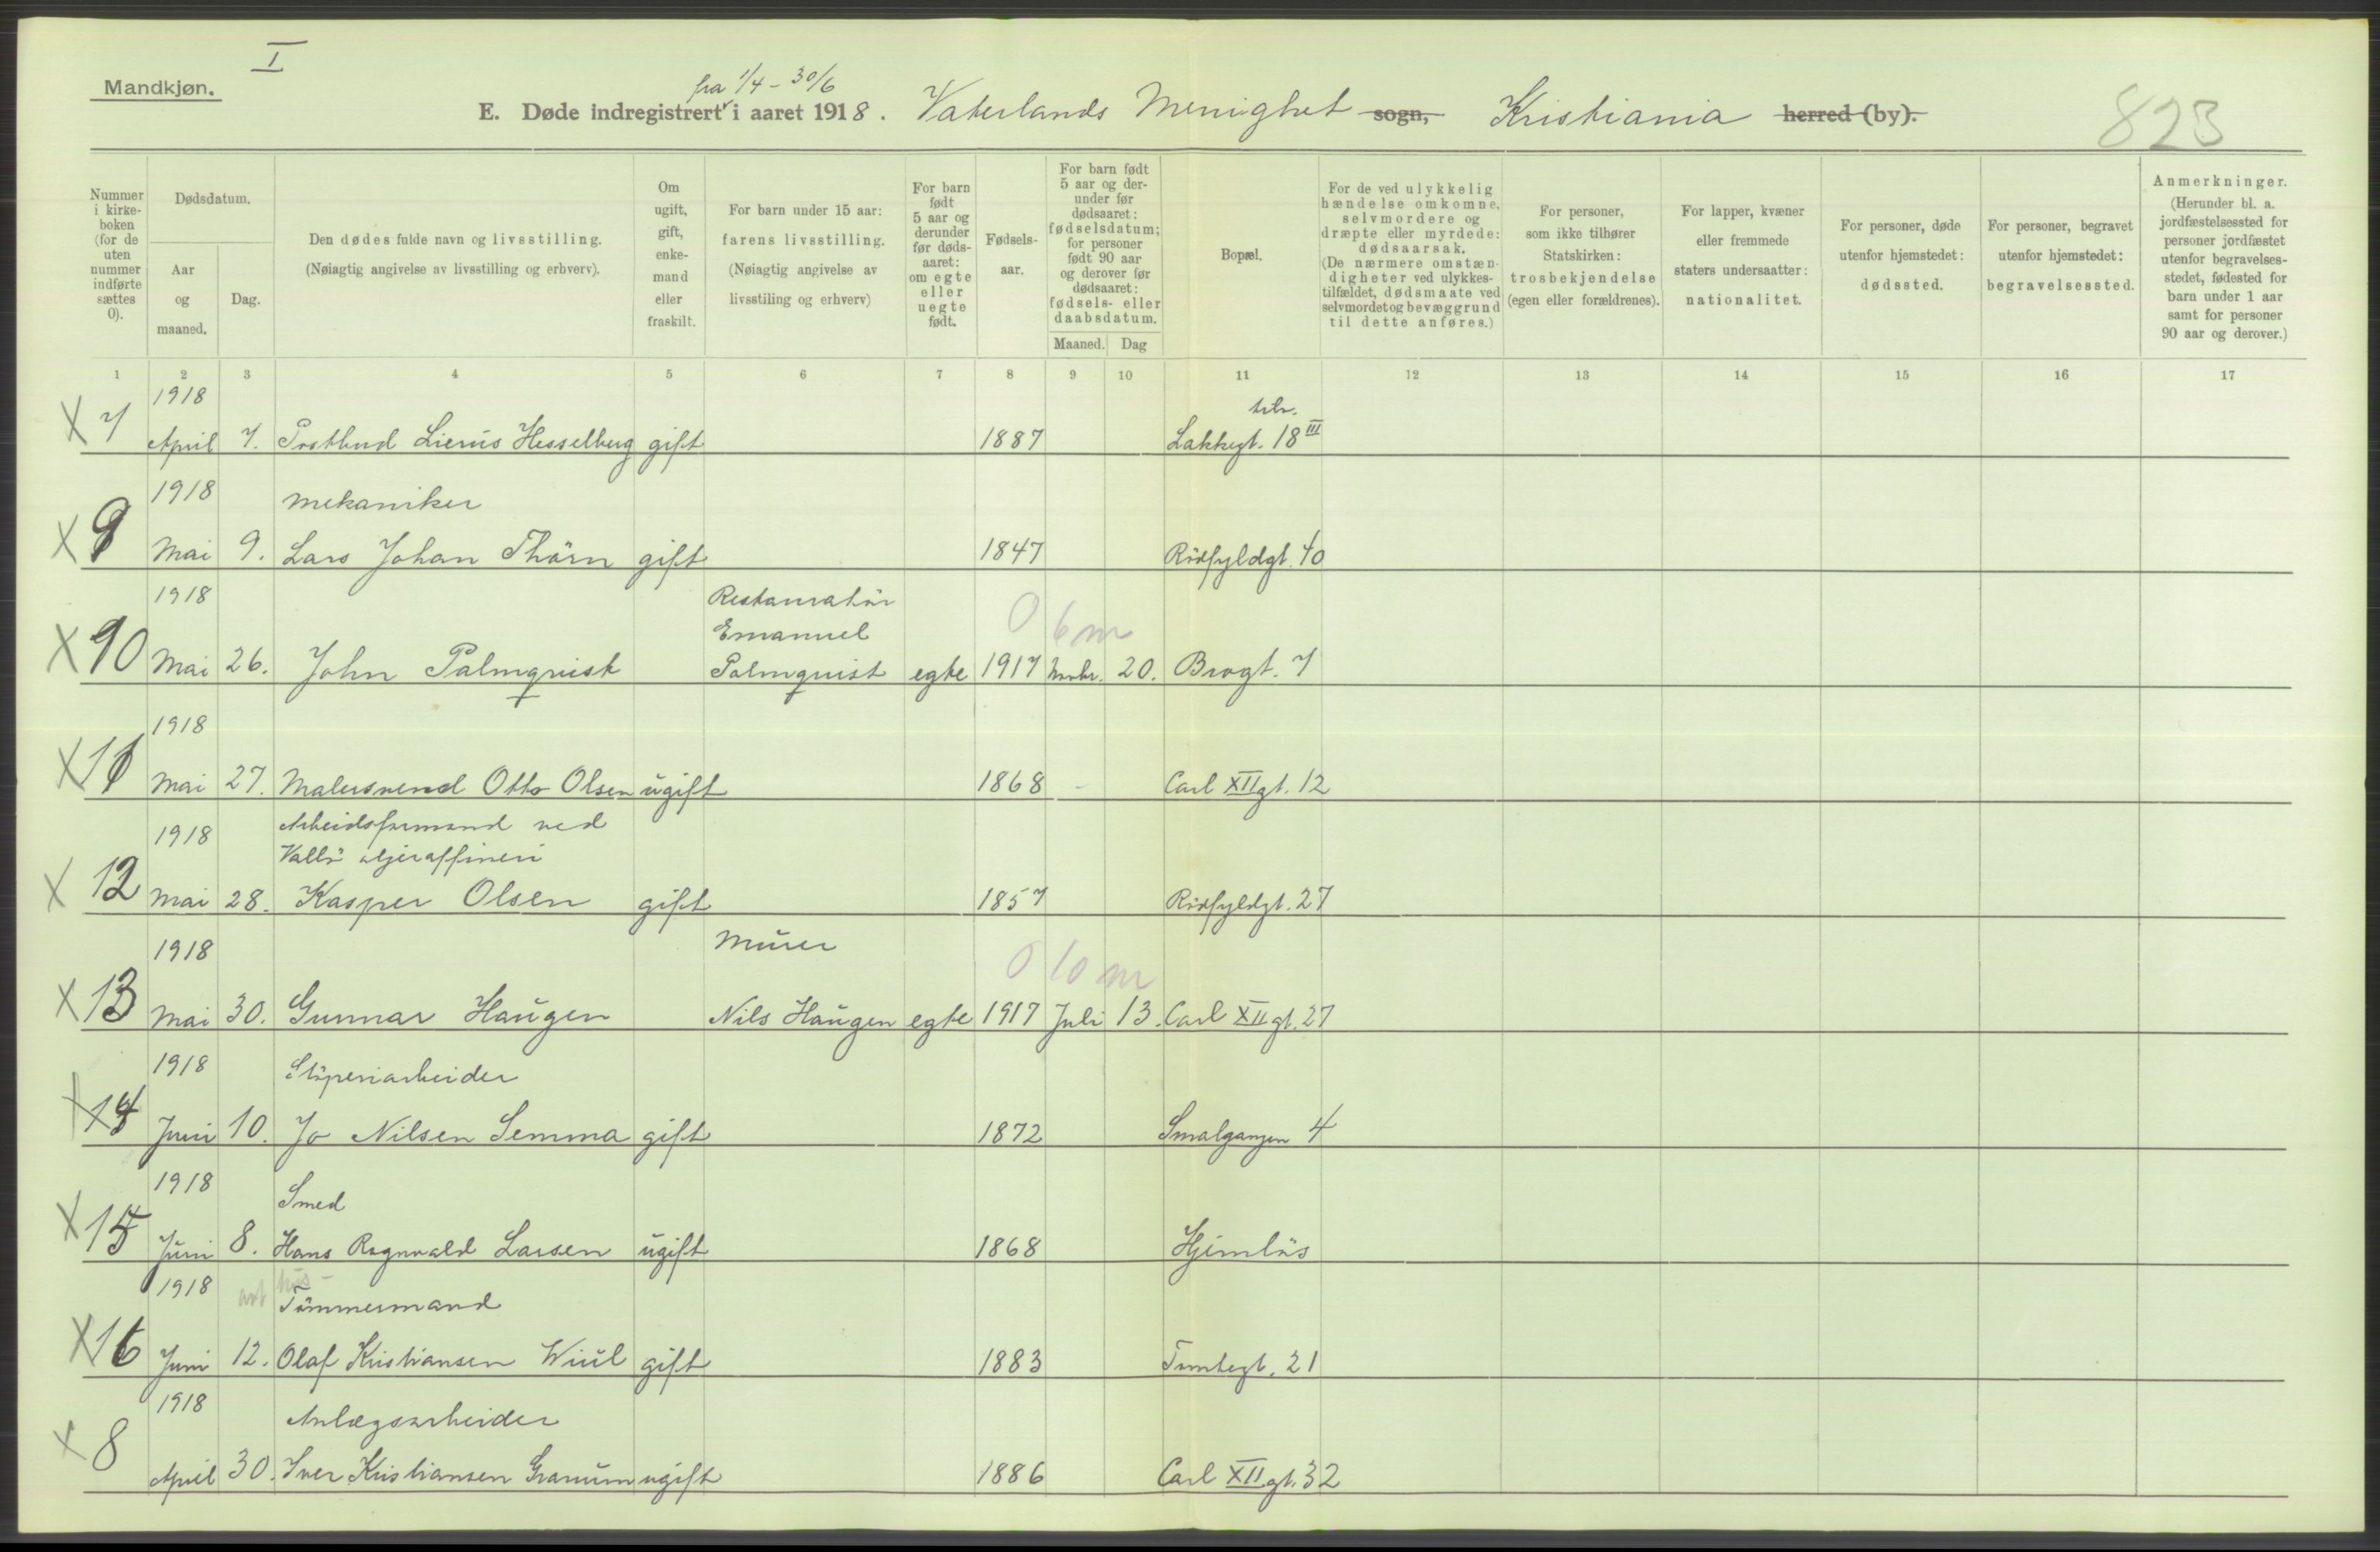 I
Mandkjøn.
fra 1/4 - 30/6
E. Døde indregistrert i aaret 1918. Vaterlands Menighet sogn, Kristiania herred (by).
823
Nummer i kirkeboken (for de uten nummer indførte sættes 0).
Dødsdatum.
Aar og maaned.
Dag.
Den dødes fulde navn og livsstilling.
(Nøiagtig angivelse av livsstilling og erhverv).
Om ugift, gift, enkemand eller fraskilt.
For barn under 15 aar: farens livsstilling.
(Nøiagtig angivelse av livsstiling og erhverv)
For barn født 5 aar og derunder før dødsaaret: om egte eller uegte født.
Fødselsaar.
For barn født 5 aar og derunder før dødsaaret: fødselsdatum; for personer født 90 aar og derover før dødsaaret: fødsels- eller daabsdatum.
Maaned. Dag
Bopæl.
For de ved ulykkelig hændelse omkomne, selvmordere og dræpte eller myrdede: dødsaarsak.
(De nærmere omstændigheter ved ulykkestilfældet, dødsmaate ved selvmordet og bevæggrund til dette anføres.)
For personer, som ikke tilhører Statskirken: trosbekjendelse (egen eller forældrenes).
For lapper, kvæner eller fremmede staters undersaatter: nationalitet.
For personer, døde utenfor hjemstedet: dødssted.
For personer, begravet utenfor hjemstedet: begravelsessted.
Anmerkninger.
(Herunder bl. a. jordfæstelsessted for personer jordfæstet utenfor begravelsesstedet, fødested for barn under 1 aar samt for personer 90 aar og derover.)
1 2 3 4 5 6 7 8 9 10 11 12 13 14 15 16 17
1918
X 7 April 7. Postbud Lierus Hesselberg gift 1887 Lakkegt. 18 III
1918 Mekaniker
X 9 Mai 9. Lars Johan Thörn gift 1847 Rödfyldgt. 40
1918 Restauratör
Emanuel 0 6 m
X 10 Mai 26. John Palmquist Palmquist egte 1917 Novbr. 20. Brogt. 7
1918
X 11 Mai 27. Malersvend Otto Olsen ugift 1868 - Carl XII gt. 12
1918 Arbeidsformand ved
Vallö oljeraffineri
X 12 Mai 28. Kasper Olsen gift 1857 Rödfyldgt. 27
1918 Murer 0 10 m
X 13 Mai 30. Gunnar Haugen Nils Haugen egte 1917 Juli 13. Carl XII gt. 27
1918 Stöperiarbeider
X 14 Juni 10. Jo Nilsen Semma gift 1872 Smalgangen 4
1918 Smed
X 15 Juni 8. Hans Ragnvald Larsen ugift 1868 Hjemlös
1918 Tömmermand
X 16 Juni 12. Olaf Kristiansen Wiul gift 1883 Tomtegt. 21
1918 Anlægsarbeider
X 8 April 30. Iver Kristiansen Granum ugift 1886 Carl XII gt. 32